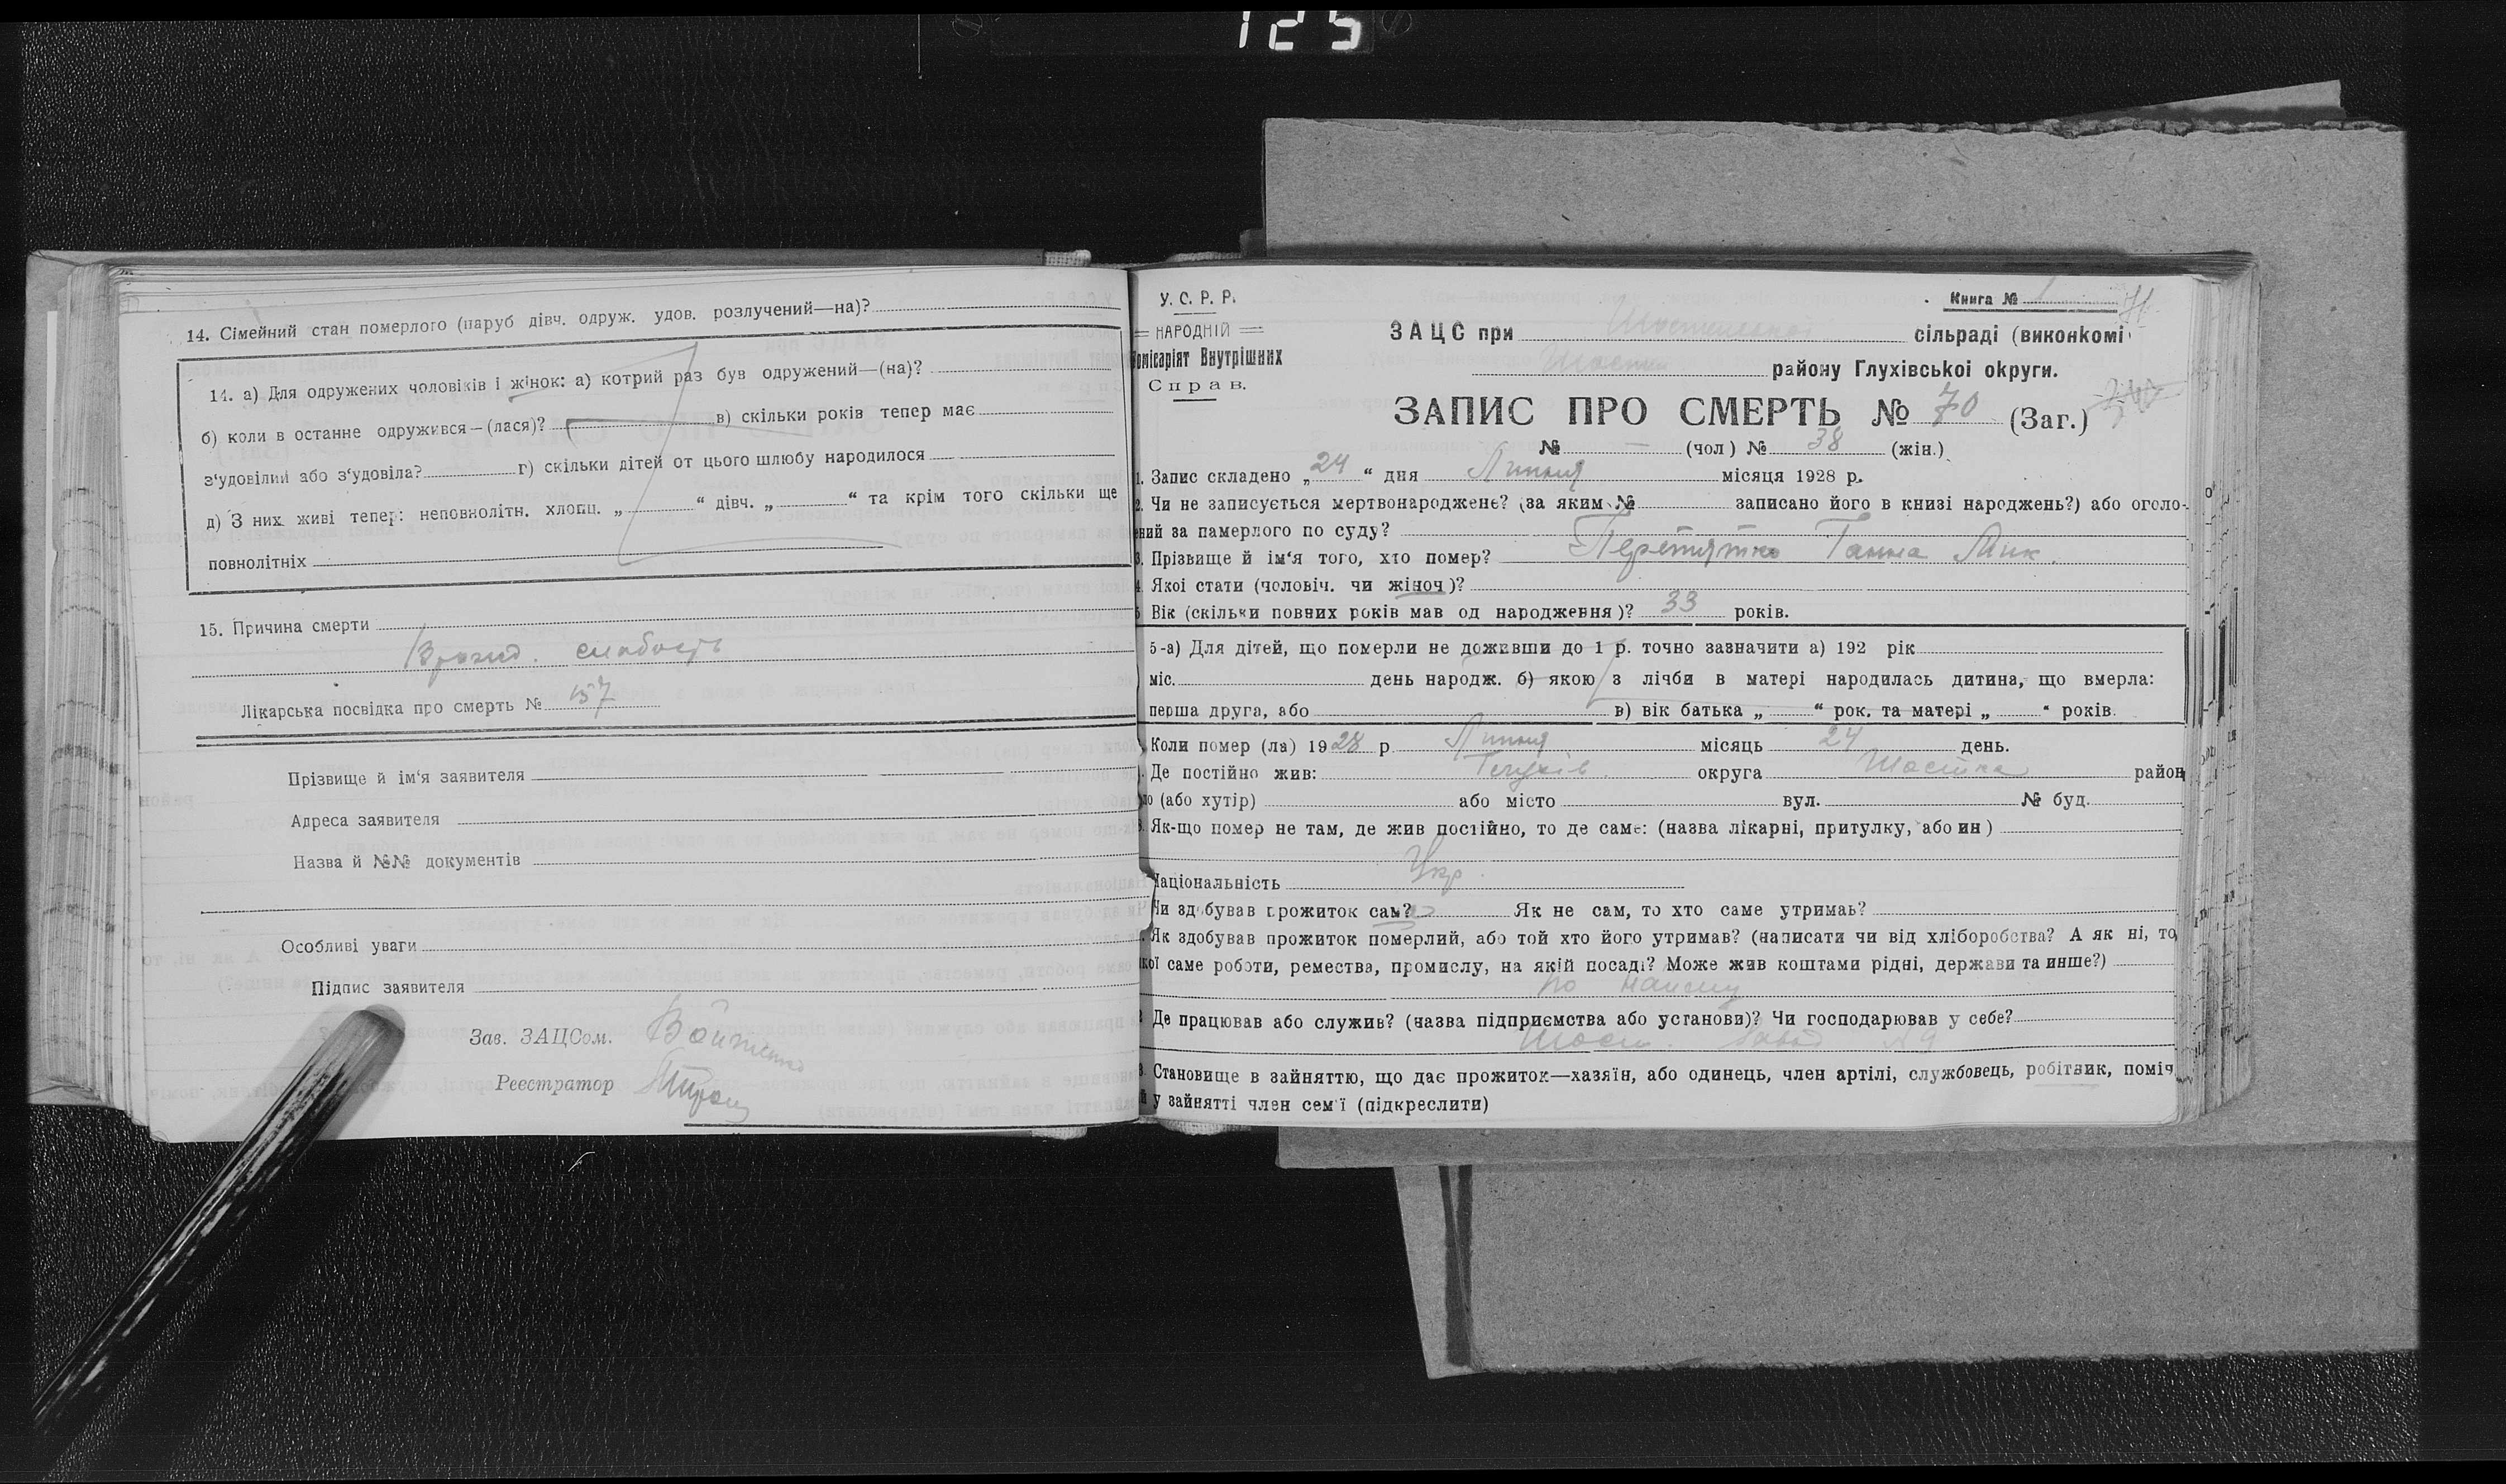 125
14. Сімейний стан померлого (паруб дівч. одруж. удов. розлучений—на)?
14. а) Для одружених чоловіків і жінок: а) котрий раз був одружений—(на)?
б) коли в останнє одружився—(лася)? в) скільки років тепер має
з'удовілий або з'удовіла? г) скільки дітей от цього шлюбу народилося
д) З них живі тепер: неповнолітн. хлопц. „ “ дівч. „ “ та крім того скільки ще
повнолітніх
15. Причина смерти
слабость
Лікарська посвідка про смерть № 157
Прізвище й ім'я заявителя
Адреса заявителя
Назва й №№ документів
Особливі уваги
Підпис заявителя
Зав. ЗАЦСом.
Реєстратор
У. С. Р. Р.
НАРОДНІЙ
Комісаріят Внутрішних
Справ.
Книга №
ЗАЦС при сільраді (виконкомі
району Глухівської округи.
ЗАПИС ПРО СМЕРТЬ № 70 (Заг.)
№ — (чол) № 38 (жін.)
1. Запис складено „24“ дня Липня місяця 1928 р.
2. Чи не записується мертвонароджене? (за яким № записано його в книзі народжень?) або оголо-
ений за памерлого по суду?
3. Прізвище й ім'я того, хто помер? Перетятко Ганна Мик.
4. Якої стати (чоловіч. чи жіноч)?
5 Вік (скільки повних років мав од народження)? 33 років.
5-а) Для дітей, що померли не доживши до 1 р. точно зазначити а) 192 рік
міс. день народж. б) якою з лічби в матері народилась дитина, що вмерла:
перша друга, або в) вік батька „ “ рок. та матері „ “ років.
Коли помер (ла) 1928 р. Липня місяць 24 день.
Де постійно жив: Глухів округа Шостка район
(або хутір) або місто вул. № буд.
Як-що помер не там, де жив постійно, то де саме: (назва лікарні, притулку, або ин)
Національність Укр.
Чи здобував прожиток сам? Як не сам, то хто саме утримав?
Як здобував прожиток померлий, або той хто його утримав? (написати чи від хліборобства? А як ні, то
кої саме роботи, ремества, промислу, на якій посаді? Може жив коштами рідні, держави та инше?)
по найму
Де працював або служив? (назва підприємства або установи)? Чи господарював у себе?
Шост. завод
Становище в зайняттю, що дає прожиток—хазяїн, або одинець, член артілі, службовець, робітник, поміч
й у зайнятті член сем'ї (підкреслити)